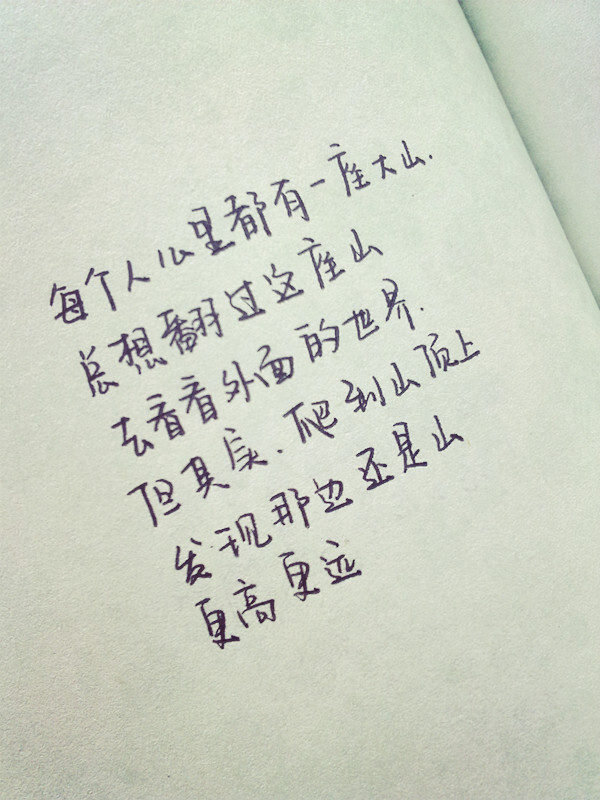 每个人心里都有一座大山.
总想翻过这座山
去看看外面的世界.
但其实.爬到山顶上
发现那边还是山
更高更远